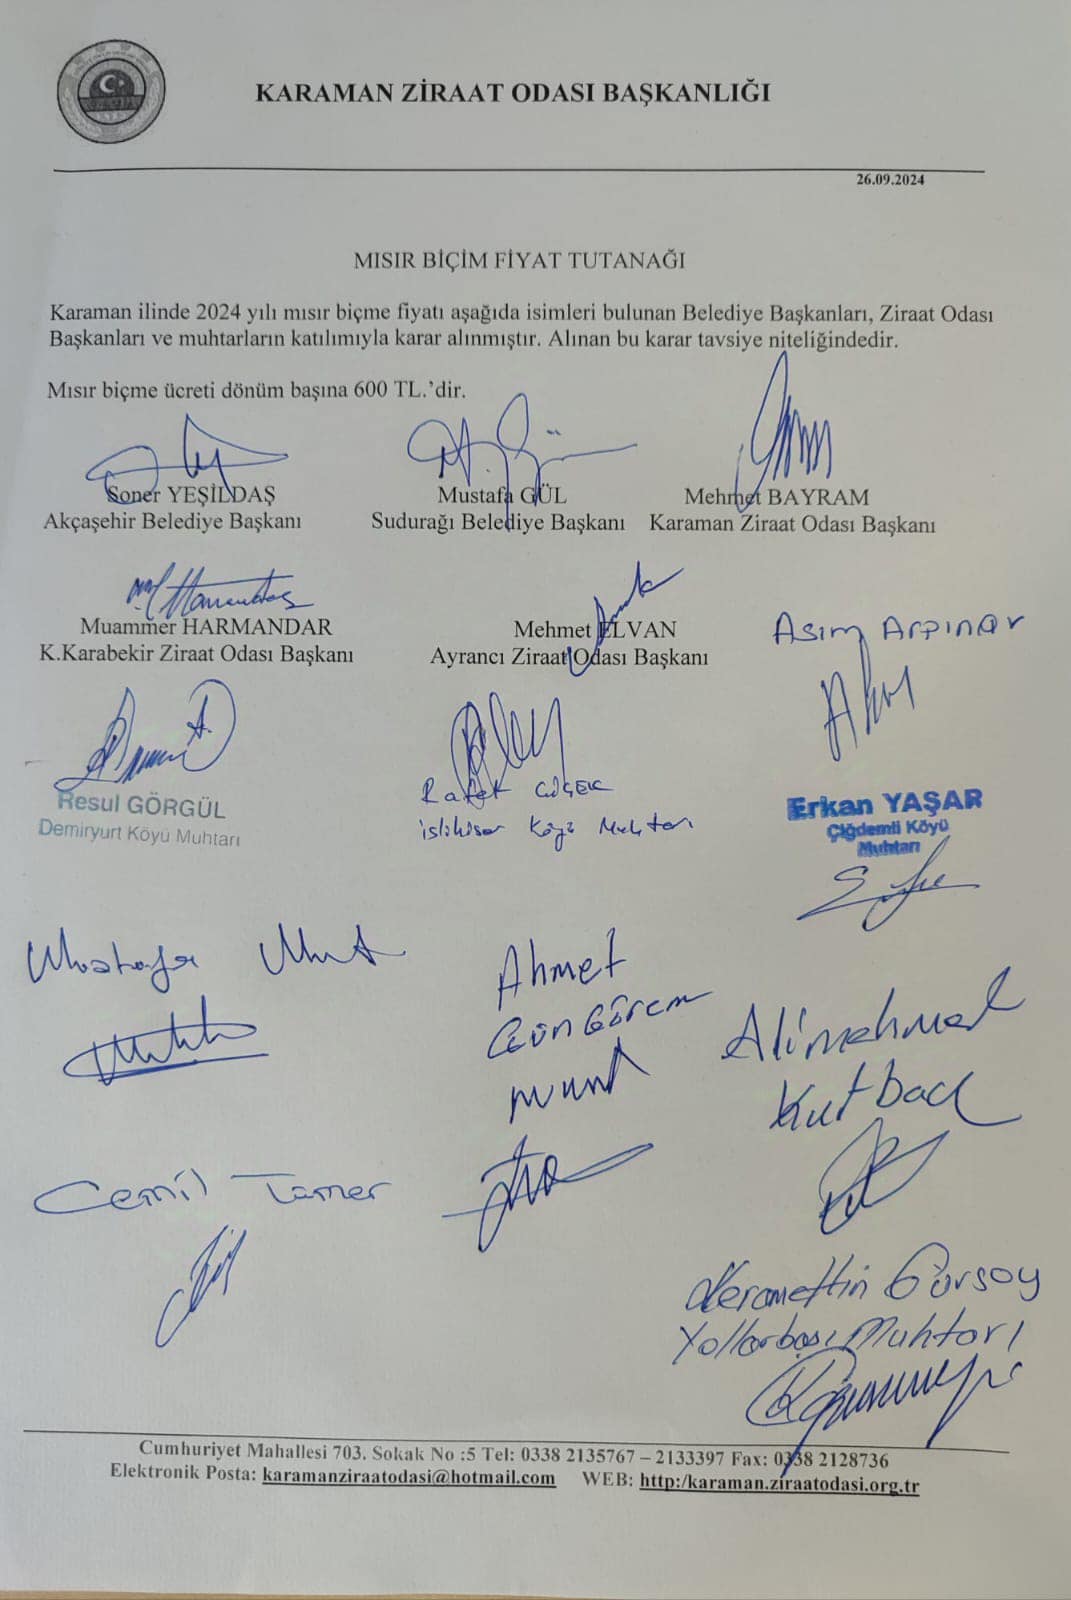 KARAMAN ZİRAAT ODASI BAŞKANLIĞI
26.09.2024
MISIR BİÇİM FİYAT TUTANAĞI
Karaman ilinde 2024 yılı mısır biçme fiyatı aşağıda isimleri bulunan Belediye Başkanları, Ziraat Odası
Başkanları ve muhtarların katılımıyla karar alınmıştır. Alınan bu karar tavsiye niteliğindedir.
Mısır biçme ücreti dönüm başına 600 TL.'dir.
Soner YEŞİLDAŞ
Akçaşehir Belediye Başkanı
Mustafa GÜL
Sudurağı Belediye Başkanı
Mehmet BAYRAM
Karaman Ziraat Odası Başkanı
Muammer HARMANDAR
K.Karabekir Ziraat Odası Başkanı
Mehmet ELVAN
Ayrancı Ziraat Odası Başkanı
Asım Arpınar
Resul GÖRGÜL
Demiryurt Köyü Muhtarı
Köyü Muhtarı
Erkan YAŞAR
Çiğdemli Köyü
Muhtarı
Mustafa
Ahmet
Güngörem
Alimehmet
Cemil Tamer
Keramettin Gürsoy
Yollarbaşı Muhtarı
Cumhuriyet Mahallesi 703. Sokak No :5 Tel: 0338 2135767 – 2133397 Fax: 0338 2128736
Elektronik Posta: karamanziraatodasi@hotmail.com WEB: http:/karaman.ziraatodasi.org.tr